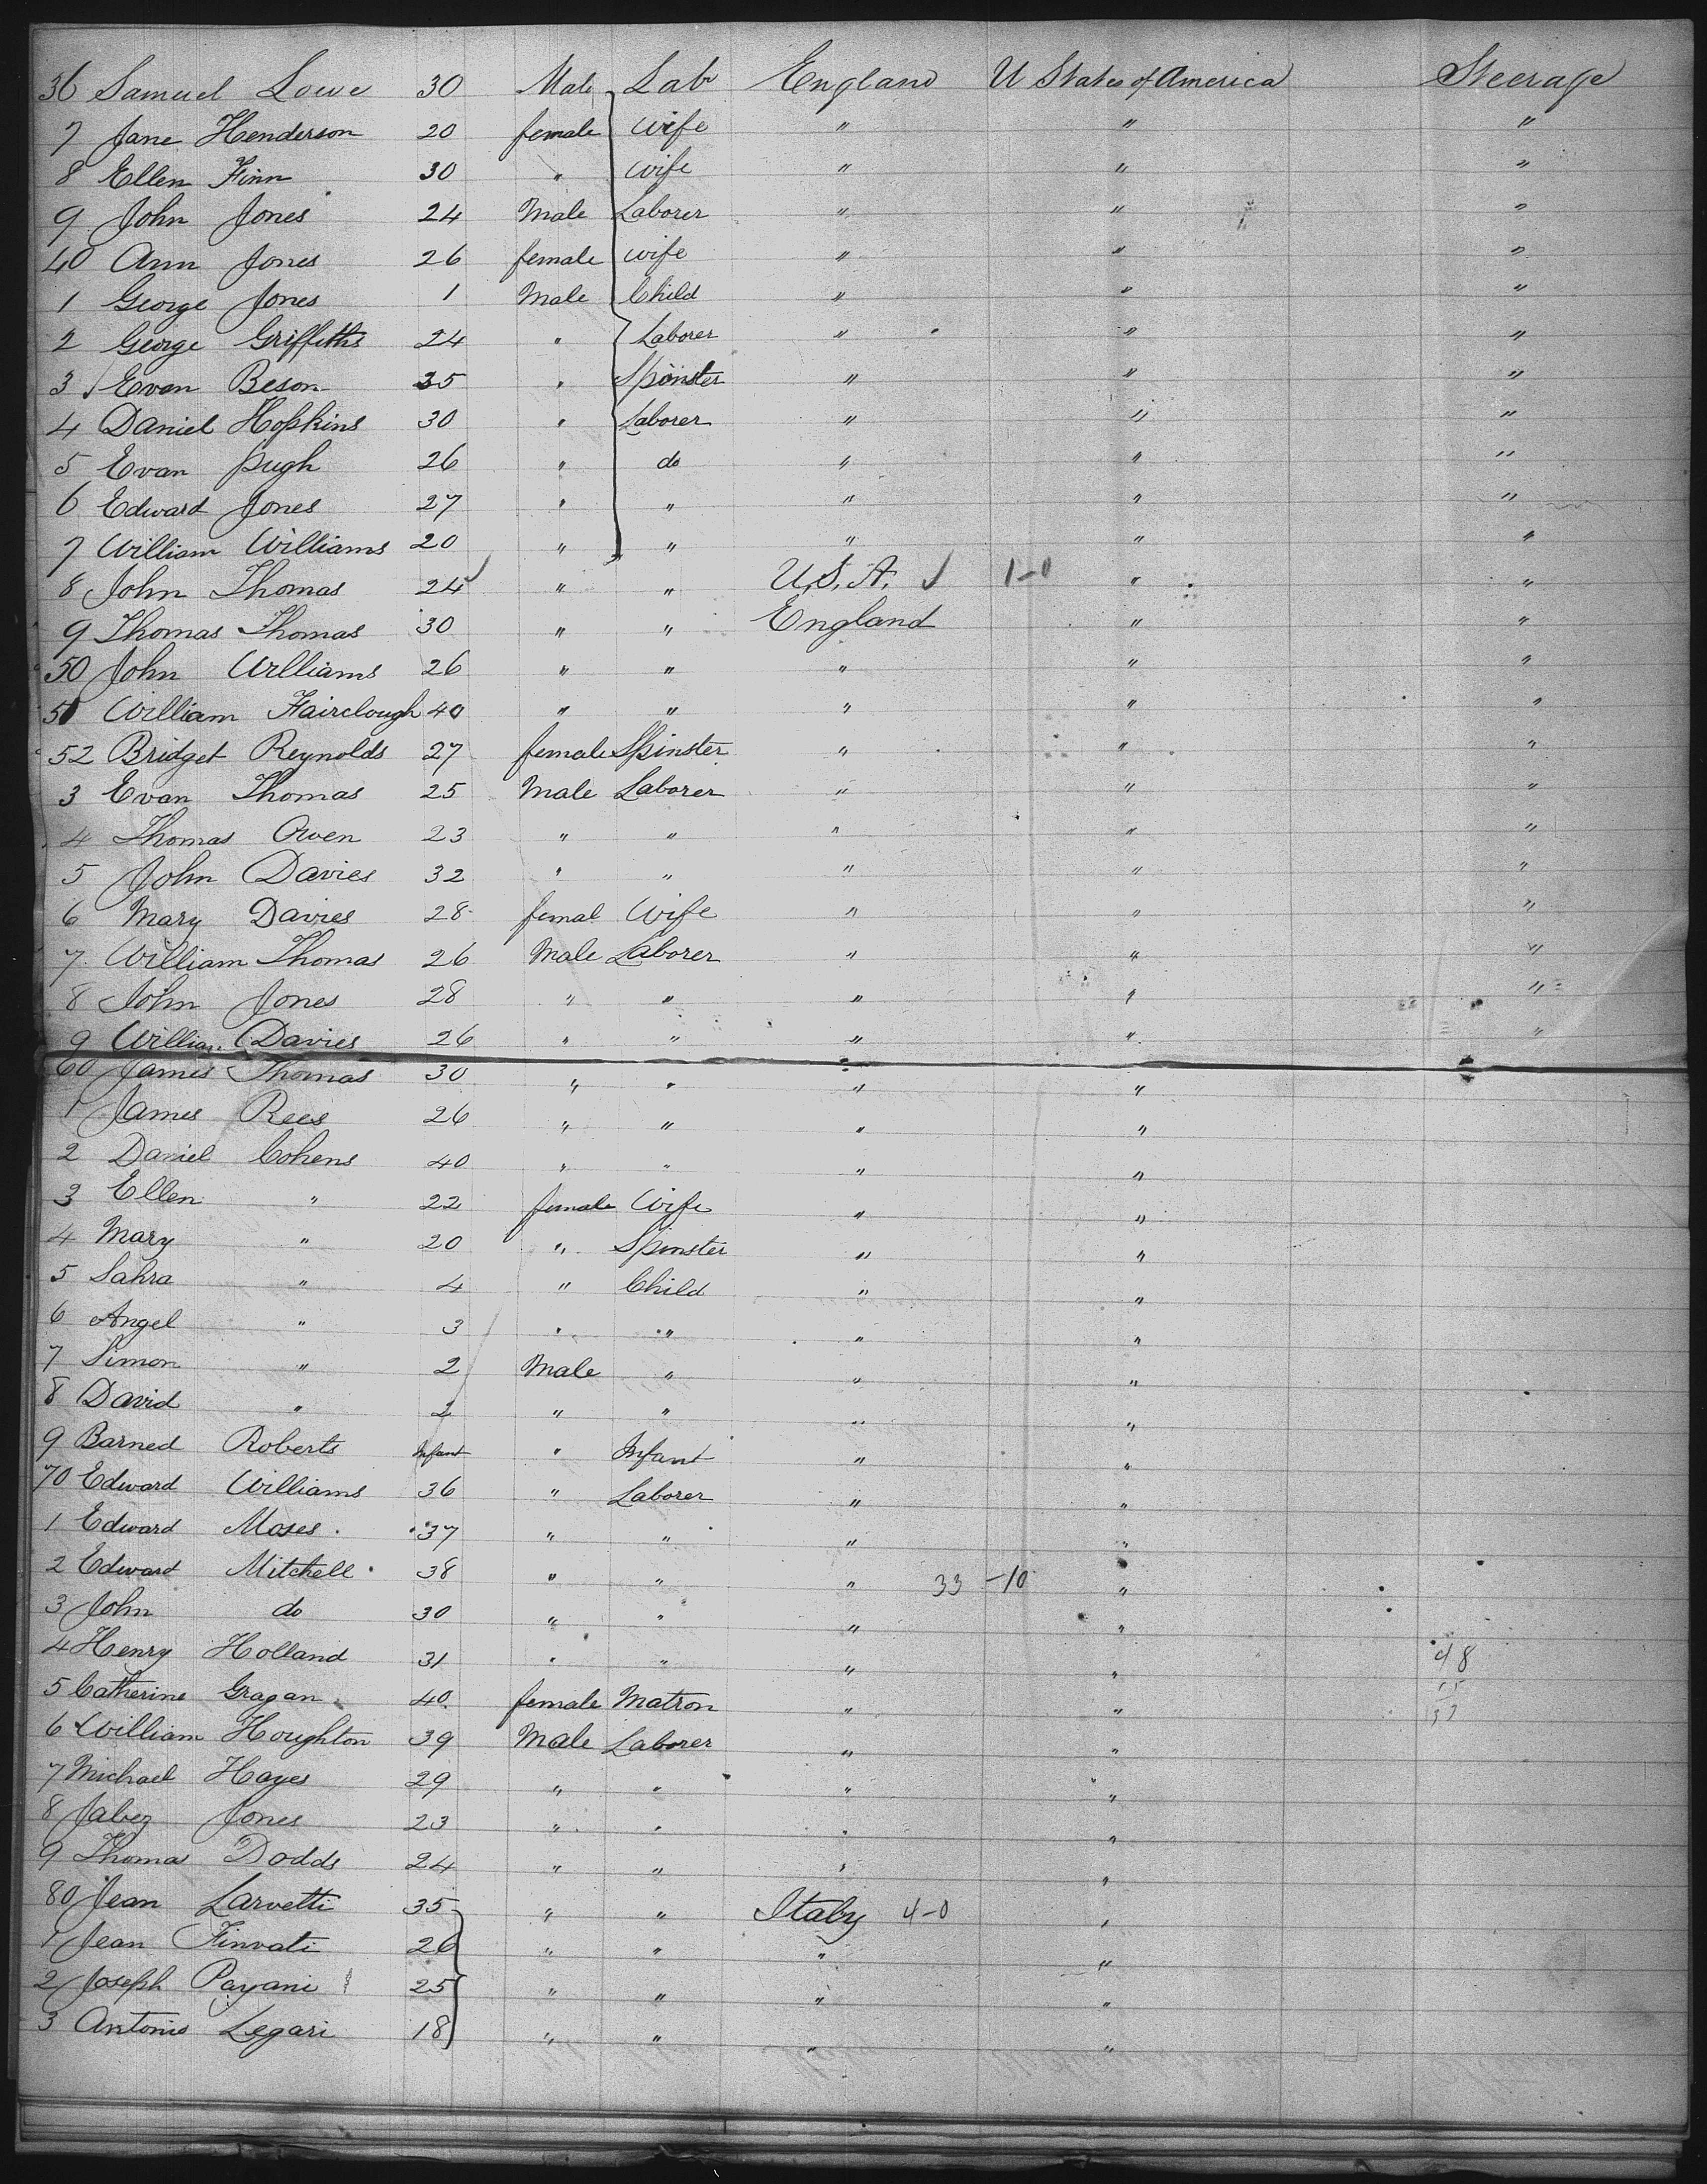 36 Samuel Lowe 30 Male Lab England U States of America Steerage
7 Jane Henderson 20 female Wife " " "
8 Ellen Finn 30 " Wife " " "
9 John Jones 24 Male Laborer " " "
40 Ann Jones 26 female wife " " "
1 George Jones 1 Male Child " " "
2 George Griffeths 24 " Laborer " " "
3 Evan Beson 35 " Spinster " " "
4 Daniel Hopkins 30 " Laborer " " "
5 Evan Pugh 26 " do " " "
6 Edward Jones 27 " " " " "
7 William Williams 20 " " " " "
8 John Thomas 24 " " U.S.A. 1-0 " "
9 Thomas Thomas 30 " " England " "
50 John Williams 26 " " " " "
51 William Fairclough 40 " " " " "
52 Bridget Reynolds 27 female Spinster " " "
3 Evan Thomas 25 Male Laborer " " "
4 Thomas Owen 23 " " " " "
5 John Davies 32 " " " " "
6 Mary Davies 28 femal Wife " " "
7 William Thomas 26 Male Laborer " " "
8 John Jones 28 " " " " "
9 William Davies 26 " " " " "
60 James Thomas 30 " " " "
1 James Rees 26 " " " "
2 Daniel Cohens 40 " " " "
3 Ellen " 22 female Wife " "
4 Mary " 20 " Spinster " "
5 Sahra " 4 " Child " "
6 Angel " 3 " " " "
7 Simon " 2 Male " " "
8 David " 2 " " " "
9 Barned Roberts Infant " Infant " "
70 Edward Williams 36 " Laborer " "
1 Edward Moses 37 " " " "
2 Edward Mitchell 38 " " " 33 -10 "
3 John do 30 " " " "
4 Henry Holland 31 " " " " 48
5 Catherine Gragan 40 female Matron " "
6 William Houghton 39 Male Laborer " "
7 Michael Hayes 29 " " " "
8 Jabez Jones 23 " " " "
9 Thomas Dodds 24 " " " "
80 Jean Larvetti 35 " " Italy 4-0 "
1 Jean Finvati 26 " " " "
2 Joseph Payani 25 " " " "
3 Antonio Legari 18 " " " "